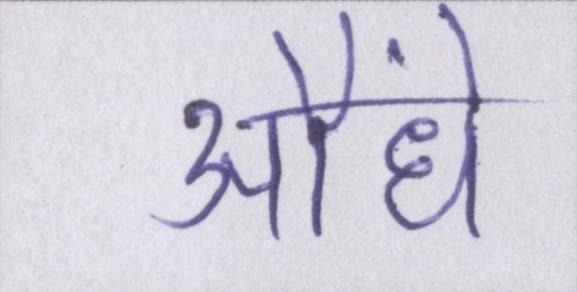 औंधे